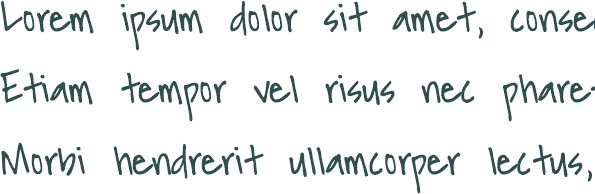 Lorem ipsum dolor sit amet, conse
Etiam tempor vel risus nec phare
Morbi hendrerit ullamcorper lectus,